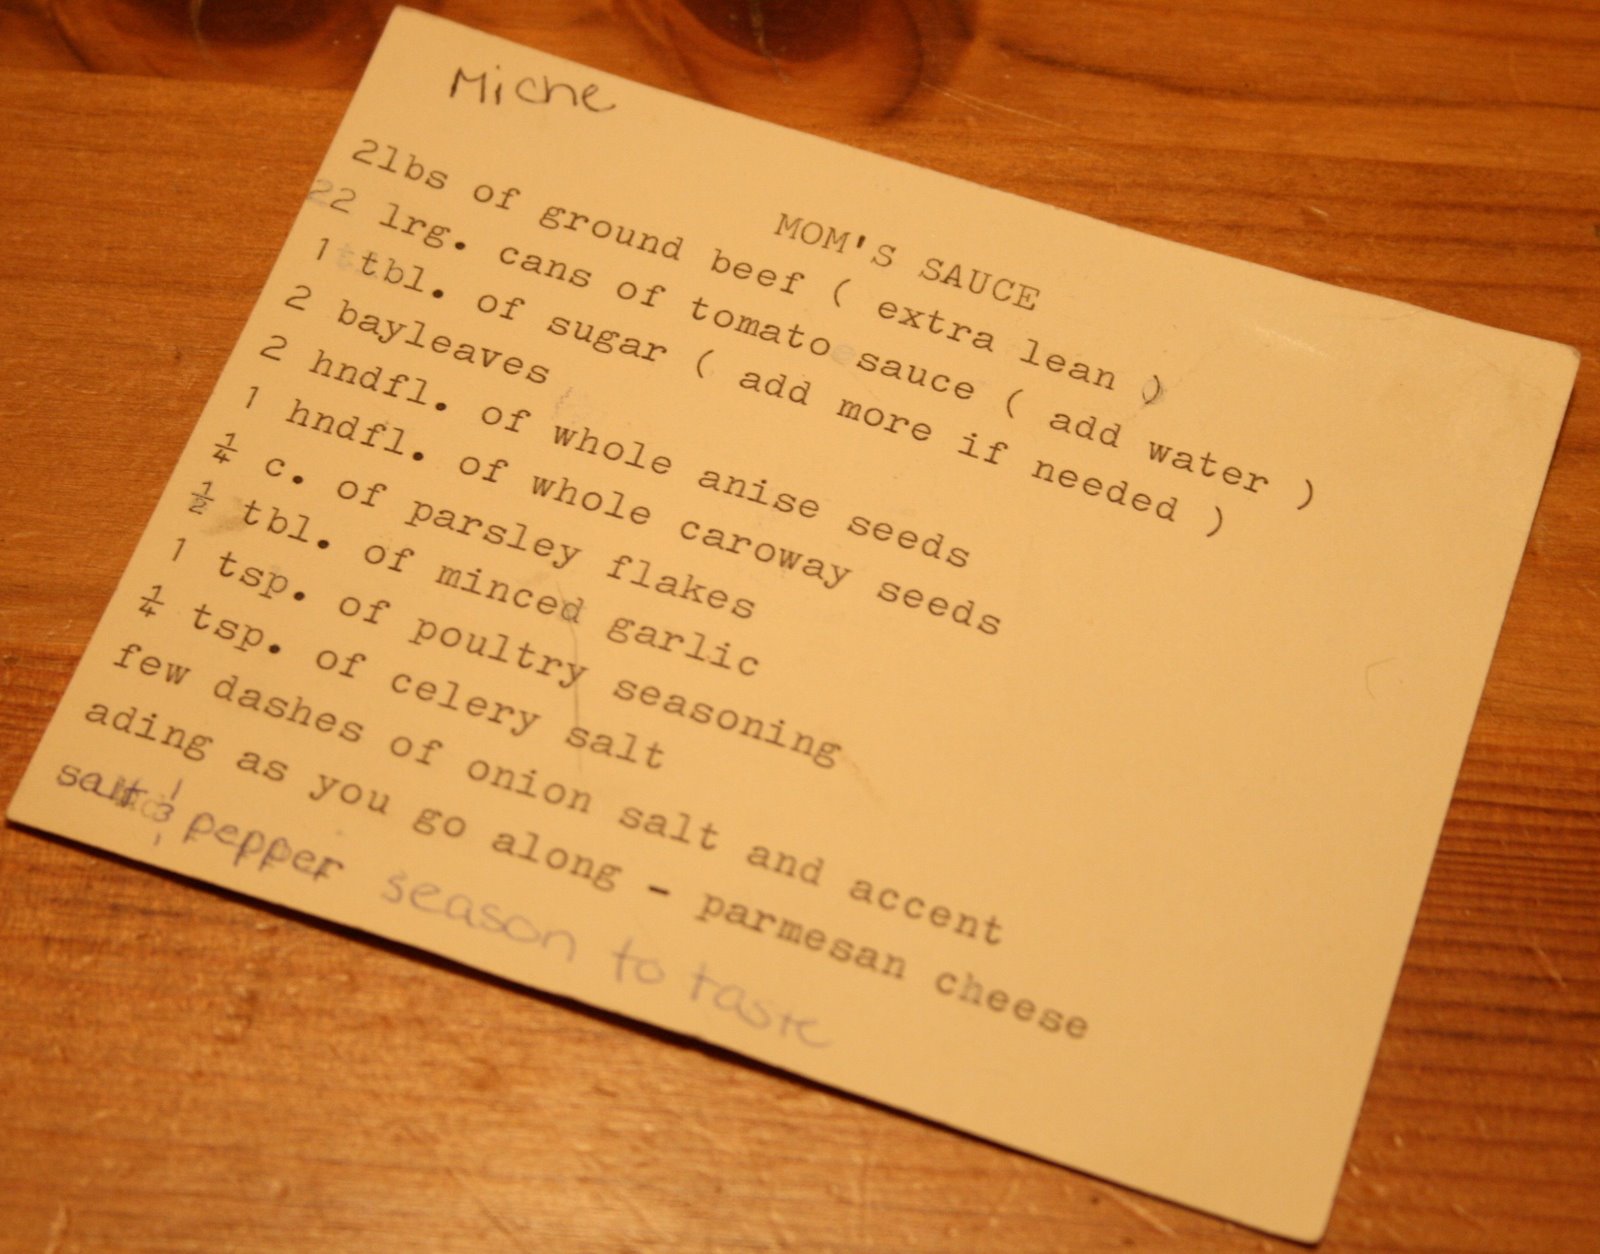 Miche
MOM'S SAUCE
2lbs of ground beef ( extra lean )
2 lrg. cans of tomato sauce ( add water )
1 tbl. of sugar ( add more if needed )
2 bayleaves
2 hndfl. of whole anise seeds
1 hndfl. of whole caroway seeds
¼ c. of parsley flakes
½ tbl. of minced garlic
1 tsp. of poultry seasoning
¼ tsp. of celery salt
few dashes of onion salt and accent
ading as you go along - parmesan cheese
salt & pepper season to taste